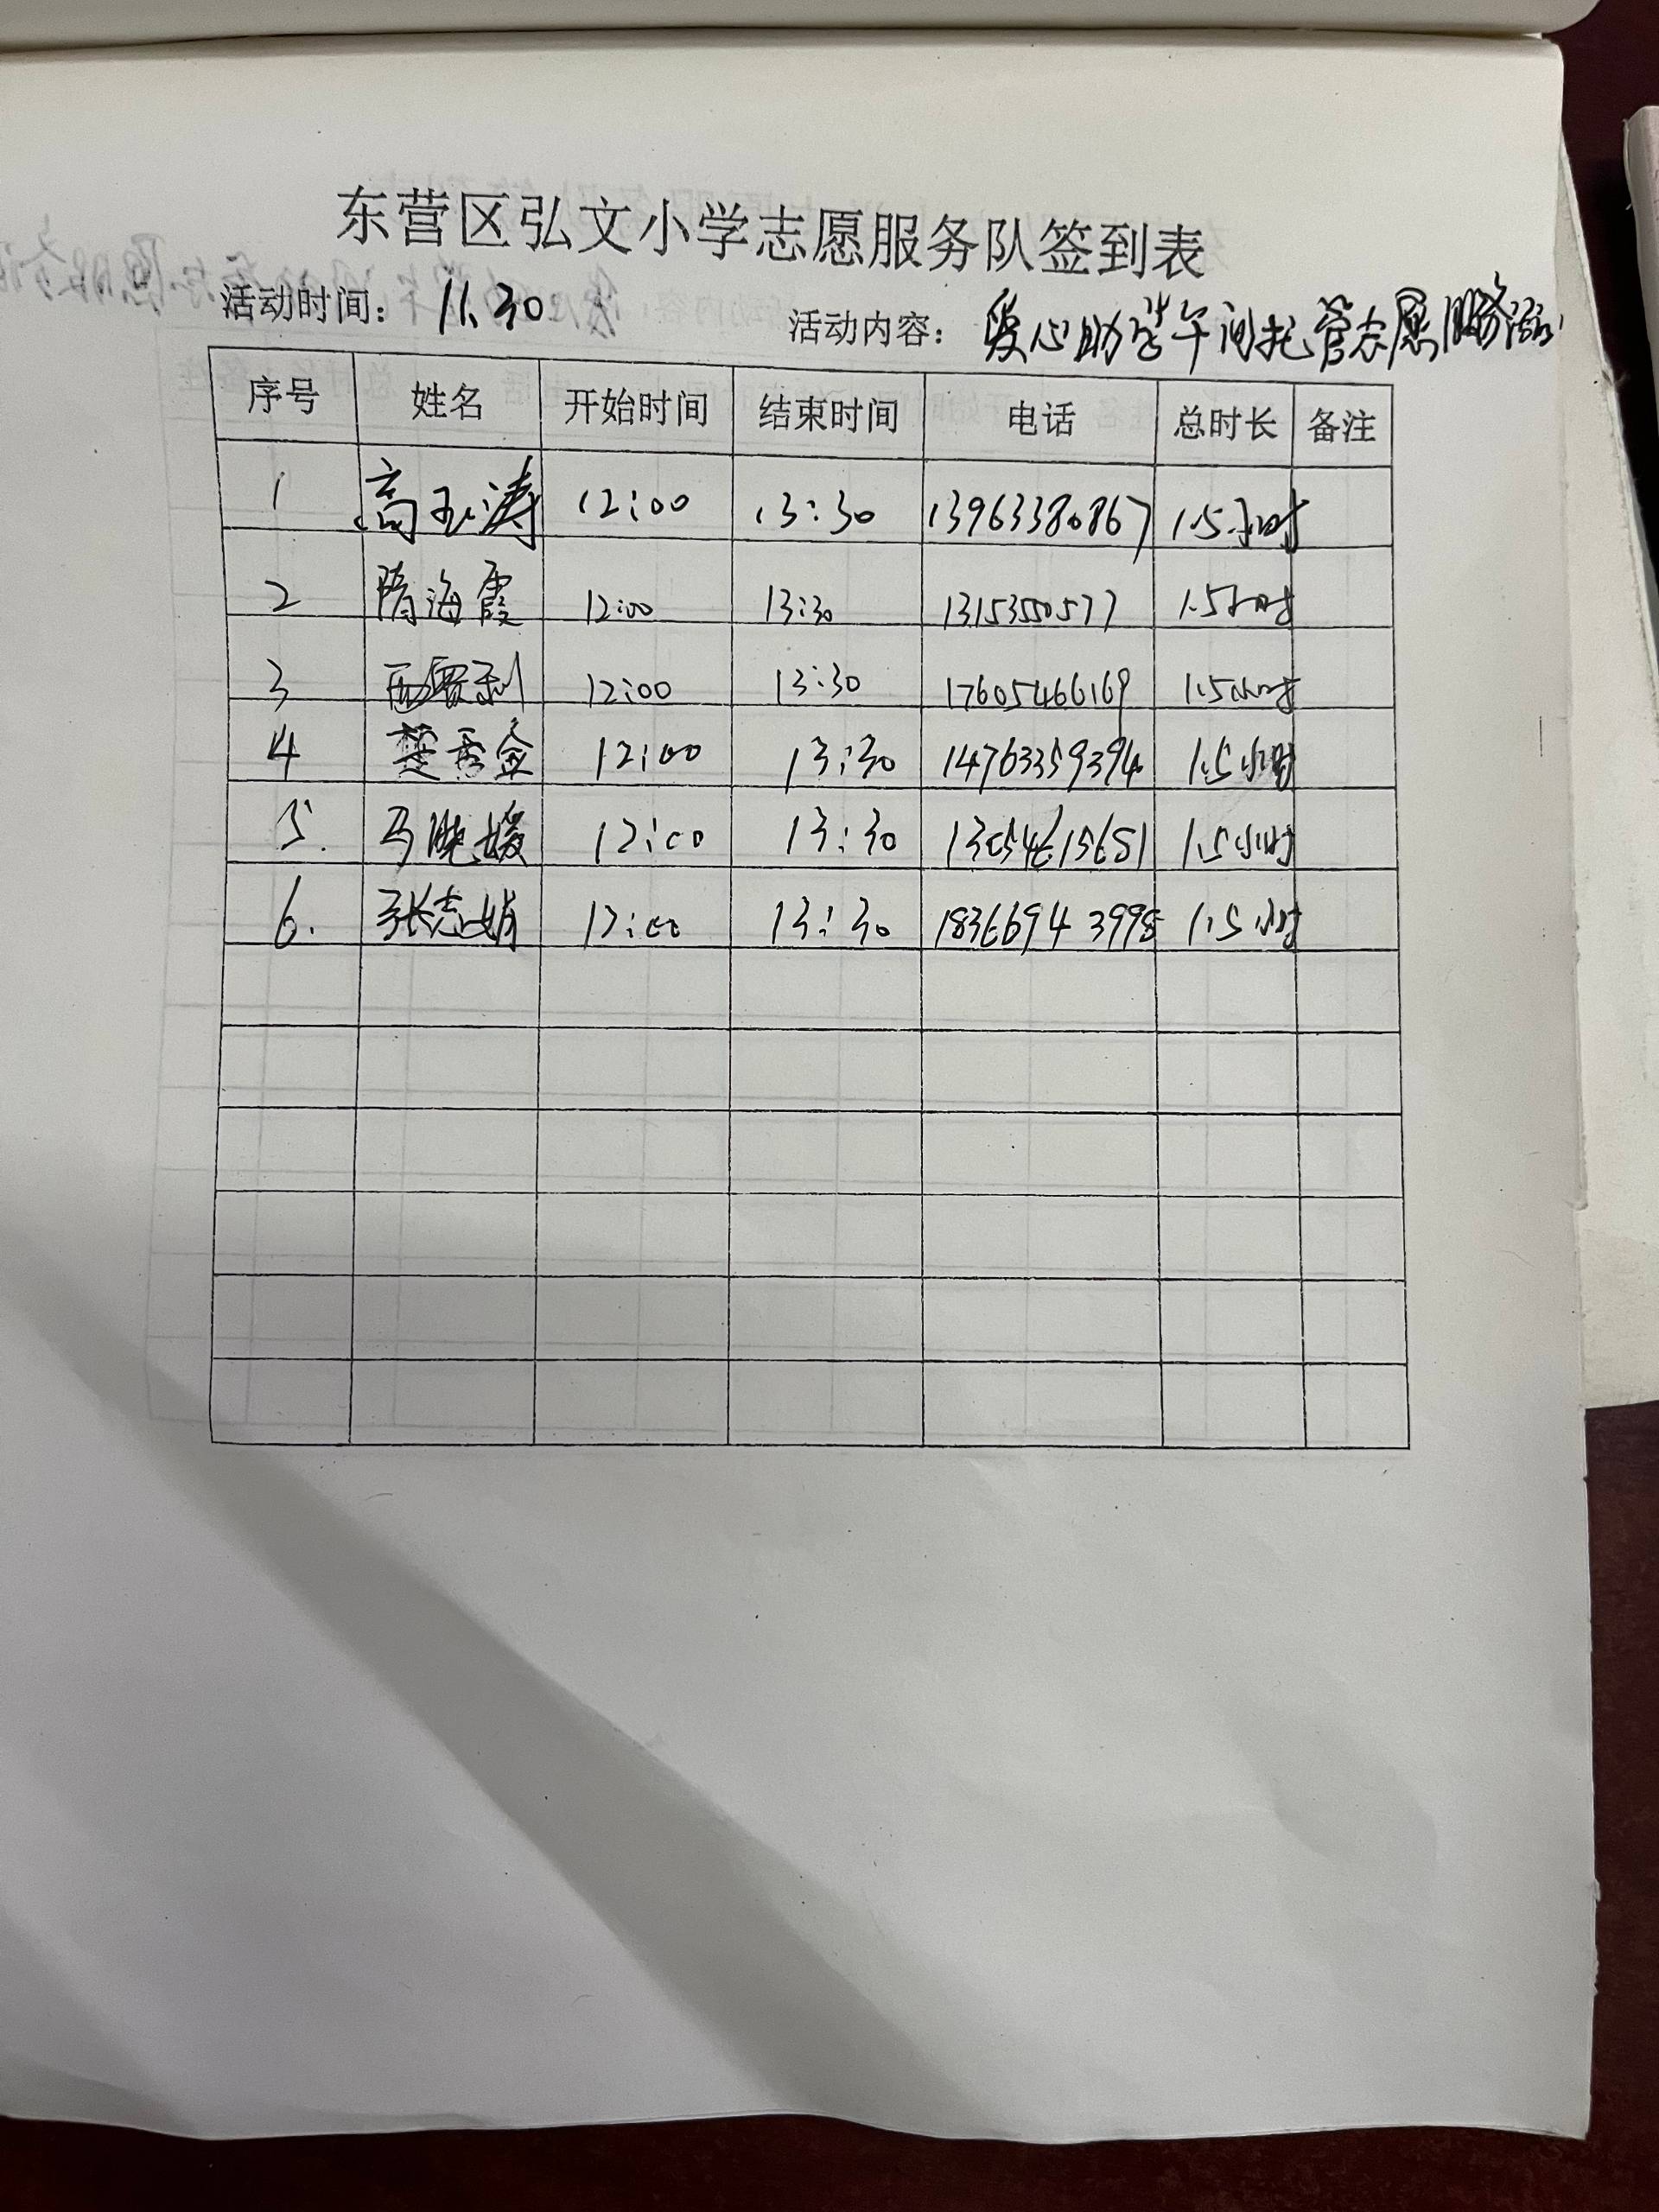 东营区弘文小学志愿服务队签到表
活动时间： 11.30 活动内容： 爱心助学午间托管志愿服务活动
序号 姓名 开始时间 结束时间 电话 总时长 备注
1 高玉涛 12:00 13:30 13963380867 1.5小时
2 隋海霞 12:00 13:30 13153550577 1.5小时
3 12:00 13:30 17605466169 1.5小时
4 楚秀金 12:00 13:30 14763359394 1.5小时
5. 马晓媛 12:00 13:30 1.5小时
6. 张志娟 12:00 13:30 18366943998 1.5小时